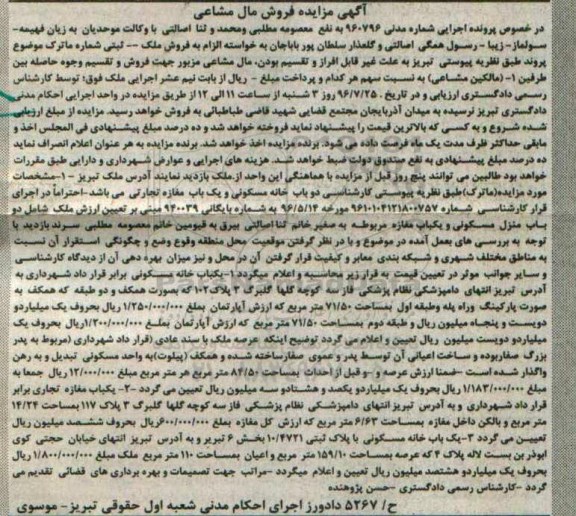 آگهی مزایده فروش مال مشاعی
در خصوص پرونده اجرایی شماره مدنی ۹۶۰۷۹۶ به نفع معصومه مطلبی ومحمد و ثنا اصالتی با وکالت موحدیان به زیان فهیمه-
سولماز- زیبا - رسول همگی اصالتی و گلعذار سلطان پور باباجان به خواسته الزام به فروش ملک -- ثبتی شماره ماترک موضوع
پروند طبق نظریه پیوستی تبریز به علت غیر قابل افراز و تقسیم بودن، مال مشاعی مزبور جهت فروش و تقسیم وجوه حاصله بین
طرفین ۱- (مالکین مشاعی) به نسبت سهم هر کدام و پرداخت مبلغ - ریال از بابت نیم عشر اجرایی ملک فوق؛ توسط کارشناس
رسمی دادگستری ارزیابی و در تاریخ ۹۶/۷/۲۵ روز ۳ شنبه از ساعت ۱۱ الی ۱۲ از طریق مزایده در واحد اجرایی احکام مدنی
دادگستری تبریز نرسیده به میدان آذربایجان مجتمع قضایی شهید قاضی طباطبائی به فروش خواهد رسید. مزایده از مبلغ ارزیابی
شده شروع و به کسی که بالاترین قیمت را پیشنهاد نماید فروخته خواهد شد و ده درصد مبلغ پیشنهادی فی المجلس اخذ و
مابقی حداکثر ظرف مدت یک ماه فرصت داده می شود. برنده مزایده اخذ خواهد شد. برنده مزایده به هر عنوان اعلام انصراف نماید
ده درصد مبلغ پیشنهادی به نفع صندوق دولت ضبط خواهد شد. هزینه های اجرایی و عوارض شهرداری و دارایی طبق مقررات
خواهد بود طالبین می توانند پنج روز قبل از مزایده با هماهنگی این واحد از.ملک بازدید نمایند آدرس ملک تبریز - ۱-مشخصات
مورد مزایده(ماترک)طبق نظریه پیوستی کارشناسی دو باب خانه مسکونی و یک باب مغازه تجارتی می باشد-احتراماً در اجرای
قرار کارشناسی شماره ۹۶۱۰۱۰۴۱۳۱۸۰۰۷۵۷ مورخه ۹۶/۵/۱۴ به شماره بایگانی ۹۴۰۰۳۹ مبنی بر تعیین ارزش ملک شامل دو
باب منزل مسکونی و یکباب مغازه مربوطه به صغیر خانم ثنا اصالتی بیرق به قیومین خانم معصومه مطلبی سرند بازدید با
توجه به بررسی های بعمل آمده در موضوع و با در نظر گرفتن موقعیت محل منطقه وقوع وضع و چگونگی استقرار آن نسبت
به مناطق مختلف شهری و شبکه بندی معابر و کیفیت قرار گرفتن آن در محل و نیز میزان بهره دهی آن از دیدگاه کارشناسی
و سایر جوانب موثر در تعیین قیمت به قرار زیر محاسبه و اعلام میگردد ۱-یکباب خانه مسکونی برابر قرار داد شهرداری به
آدرس تبریز انتهای دامپزشکی نظام پزشکی فاز سه کوچه گلها گلبرگ ۳ پلاک۱۰۲ که بصورت همکف و دو طبقه که همکف به
صورت پارکینگ وراه پله وطبقه اول بمساحت ۷۱/۵۰ متر مربع که ارزش آپارتمان بمبلغ ۱/۲۵۰/۰۰۰/۰۰۰ریال بحروف یک میلیاردو
دویست و پنجاه میلیون ریال و طبقه دوم بمساحت ۷۱/۵۰ متر مربع که ارزش آپارتمان بمبلغ ۱/۲۰۰/۰۰۰/۰۰۰ریال بحروف یک
میلیاردو دویست میلیون ریال تعیین و اعلام می گردد توضیح اینکه عرصه ملک با سند عادی (قرار داد شهرداری (مربوط به پدر
بزرگ صفاربوده و ساخت اعیانی آن توسط پدر و عموی صفارساخته شده و همکف (پیلوت)به واحد مسکونی تبدیل و به رهن
واگذار شده است -ضمنا ارزش عرصه و قبل از احداث بمساحت ۸۴/۵۰ متر مربع هر متر مربع مبلغ ۱۲/۰۰۰/۰۰۰ ریال جمعا به
مبلغ ۱/۱۸۳/۰۰۰/۰۰۰ ریال بحروف یک میلیاردو یکصد و هشتادو سه میلیون ریال تعیین می گردد -۲- یکباب مغازه تجاری برابر
قرار داد شهرداری و به آدرس تبریز انتهای دامپزشکی نظام پزشکی فاز سه کوچه گلها گلبرگ ۳ پلاک ۱۱۷ بمساحت ۱۴/۲۴
متر مربع و بالکن داخل مغازه بمساحت ۶/۶۳ متر مربع که ارزش کل مغازه بمبلغ ۶۰۰/۰۰۰/۰۰۰ریال بحروف ششصد میلیون ریال
تعیین می گردد ۳-یک باب خانه مسکونی با پلاک ثبتی ۱۰/۴۷۲۱ بخش ۶ تبریر و به آدرس تبریز انتهای خیابان حجتی کوی
ابوذر بن بست لاله پلاک ۴ که عرصه بمساحت ۱۵۹/۱۰ متر مربع و اعیان بمساحت ۱۱۰ متر مربع ملک مبلغ ۱/۸۰۰/۰۰۰/۰۰۰ریال
بحروف یک میلیاردو هشتصد میلیون ریال تعیین و اعلام میگردد -مراتب جهت تصمیمات و بهره برداری های قضائی تقدیم می
گردد -کارشناس رسمی دادگستری -حسن پژوهنده
ح/ ۵۲۶۷ دادورز اجرای احکام مدنی شعبه اول حقوقی تبریز- موسوی